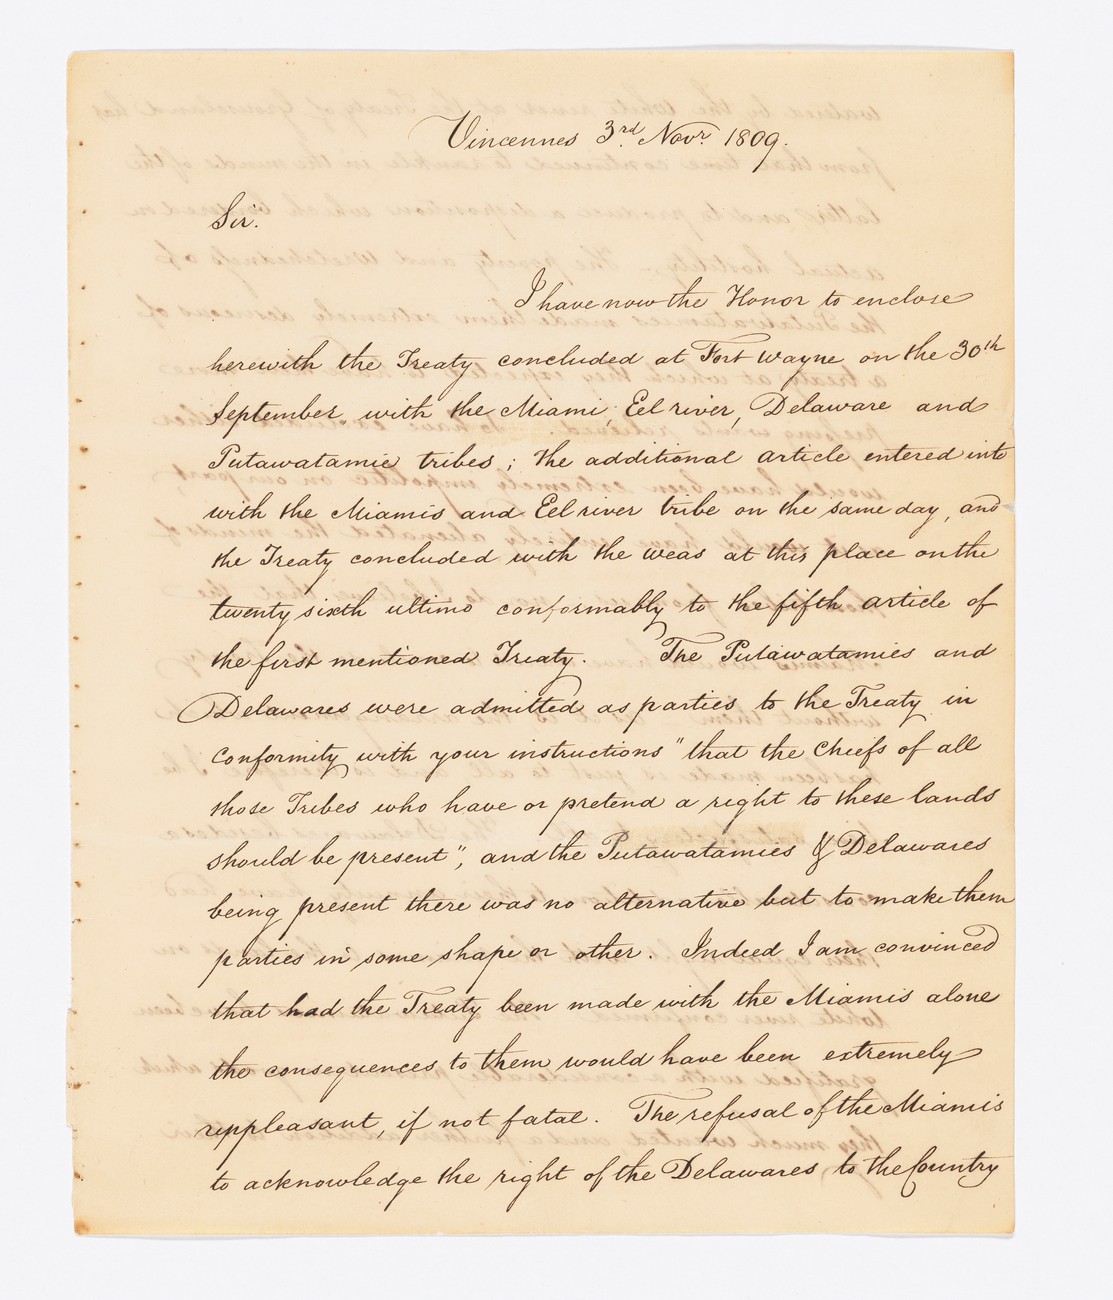 Vincennes 3rd. Novr. 1809.
Sir.
I have now the Honor to enclose
herewith the Treaty concluded at Fort Wayne on the 30th
September, with the Miami, Eel river, Delaware and
Putawatamie tribes; the additional article entered into
with the Miamis and Eel river tribe on the same day, and
the Treaty concluded with the weas at this place on the
twenty sixth ultimo conformably to the fifth article of
the first mentioned Treaty. The Putawatamies and
Delawares were admitted as parties to the Treaty in
conformity with your instructions "that the Chiefs of all
those Tribes who have or pretend a right to these lands
should be present", and the Putawatamies & Delawares
being present there was no alternative but to make them
parties in some shape or other. Indeed I am convinced
that had the Treaty been made with the Miamis alone
the consequences to them would have been extremely
unpleasant, if not fatal. The refusal of the Miamis
to acknowledge the right of the Delawares to the Country